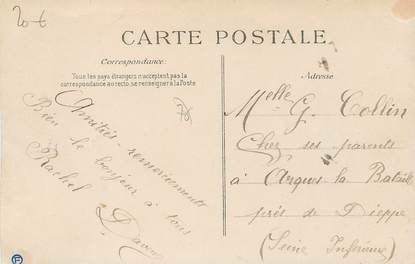 20 €
CARTE POSTALE
Correspondance:
Tous les pays étrangers n'acceptent pas la
correspondance au recto, se renseigner à la Poste
Adresse
Amitiés - remerciements
Bien le bonjour à tous
Rachel
Melle G. Collin
Chez ses parents
à Arques-la Bataille
près de Dieppe
(Seine Inférieure)